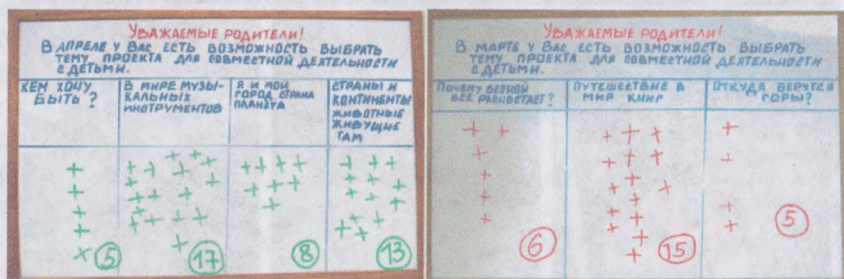 Уважаемые родители!
В апреле у Вас есть возможность выбрать
тему проекта для совместной деятельности
с детьми.
Кем хочу
быть?
В мире музы-
кальных
инструментов
Я и мой
город, страна
планета
Страны и
континенты
животные
живущие
там
5
17
8
13
Уважаемые родители!
В марте у Вас есть возможность выбрать
тему проекта для совместной деятельности
с детьми.
Почему весной
все расцветает?
Путешествие в
мир книг
Откуда берутся
горы?
6
15
5